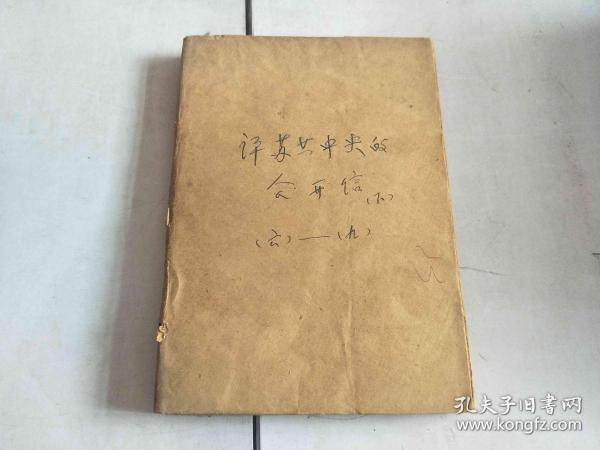 评苏共中央的
公开信(下)
(六)—(九)
孔夫子旧书网
www.kongfz.com